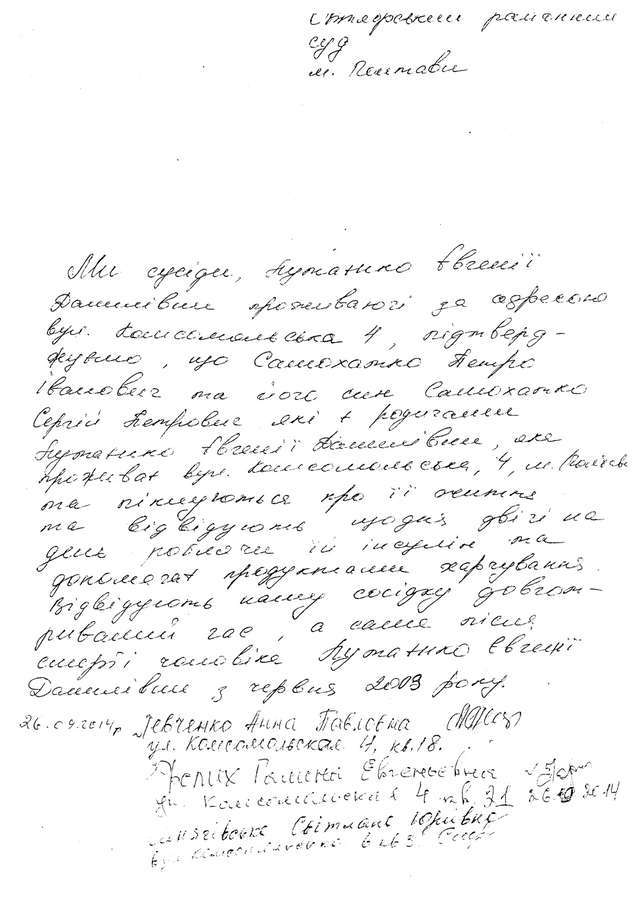 районний
суд
м. Полтави
Ми сусіди, Пужанико Євгенії
Данилівни проживаючі за адресою
вул. Комсомольська 4, підтверд-
жуємо, що Самохатко Петро
Іванович та його син Самохатко
Сергій Петрович які є родичами
Пужанико Євгенії Данилівни, яка
проживає вул. Комсомольська, 4, м.
та піклуються про її життя
та відвідують щодня двічі на
день роблячи їй інсулін та
допомагає продуктами харчування.
Відвідують нашу сосідку довгот-
ривалий час, а саме після
смерті чоловіка Пужанико Євгенії
Данилівни з червня 2009 року.
26.09.2014р Левченко Анна Павловна
ул. Комсомольская 4, кв. 18.
Галина Евгеньевна
ул. Комсомольская 4 кв 31 2014
Світлана Юріївна